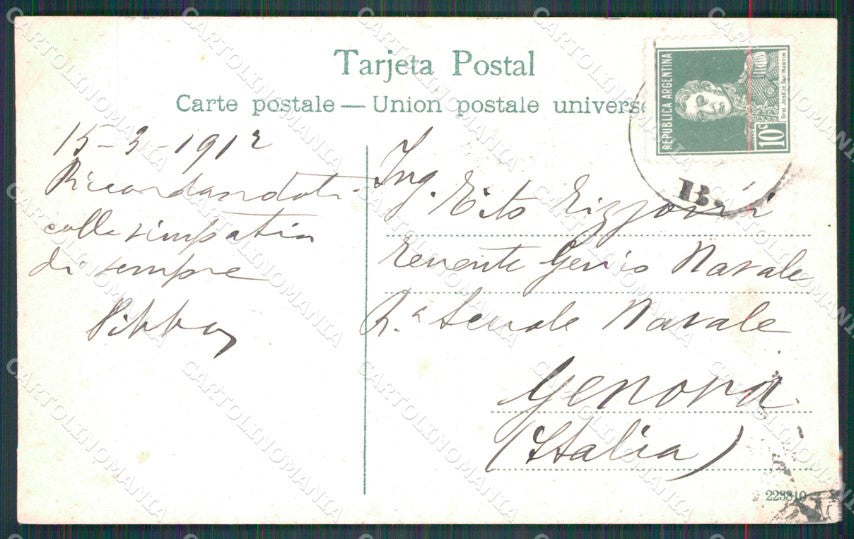 Tarjeta Postal
Carte postale — Union postale universe
REPUBLICA ARGENTINA
10c
B.
15-3-1912
Ricordandoti
colla simpatia
di sempre
Ing. Tito
Tenente Genio Navale
R.a Scuola Navale
Genova
(Italia)
223310
CARTOLINOMANIA